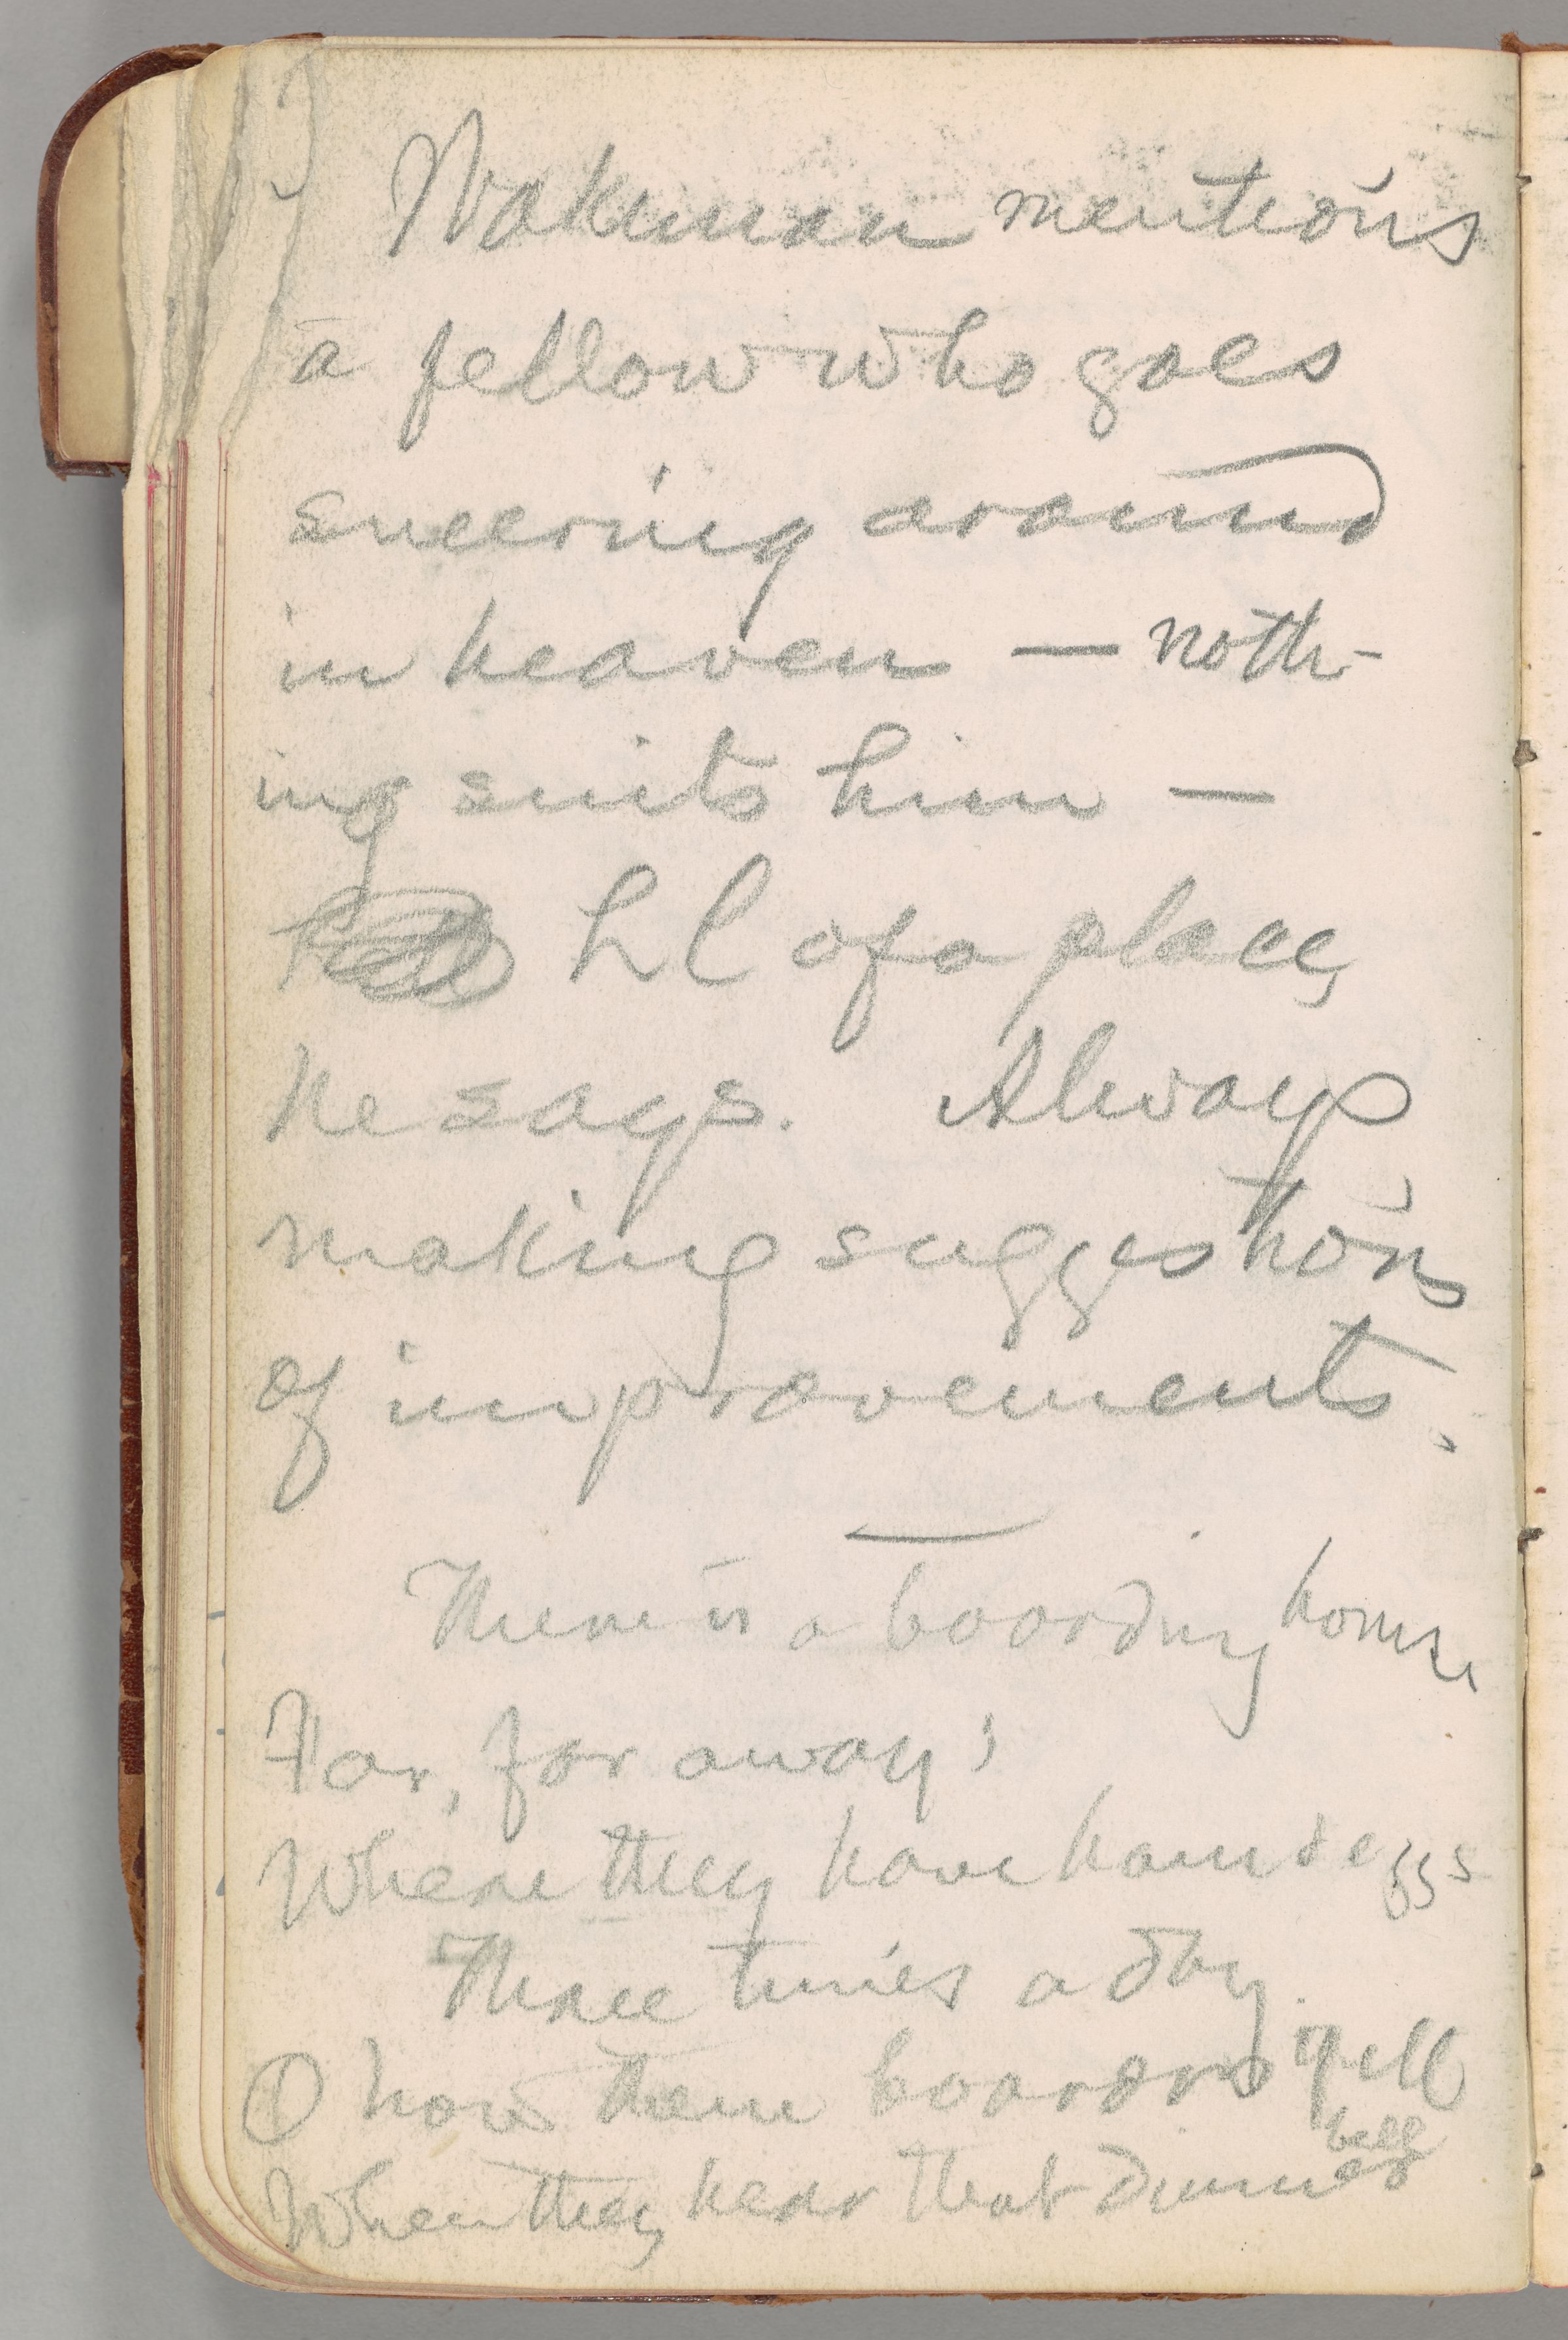 Wakeman mentions
a fellow who goes
sneering around
in heaven — noth-
ing suits him —
h l of a place,
he says. Always
making suggestions
of improvements.
There is a boarding house
Far, far away;
Where they have ham & eggs
Three times a day.
O how them boarders yell
When they hear that dinner bell